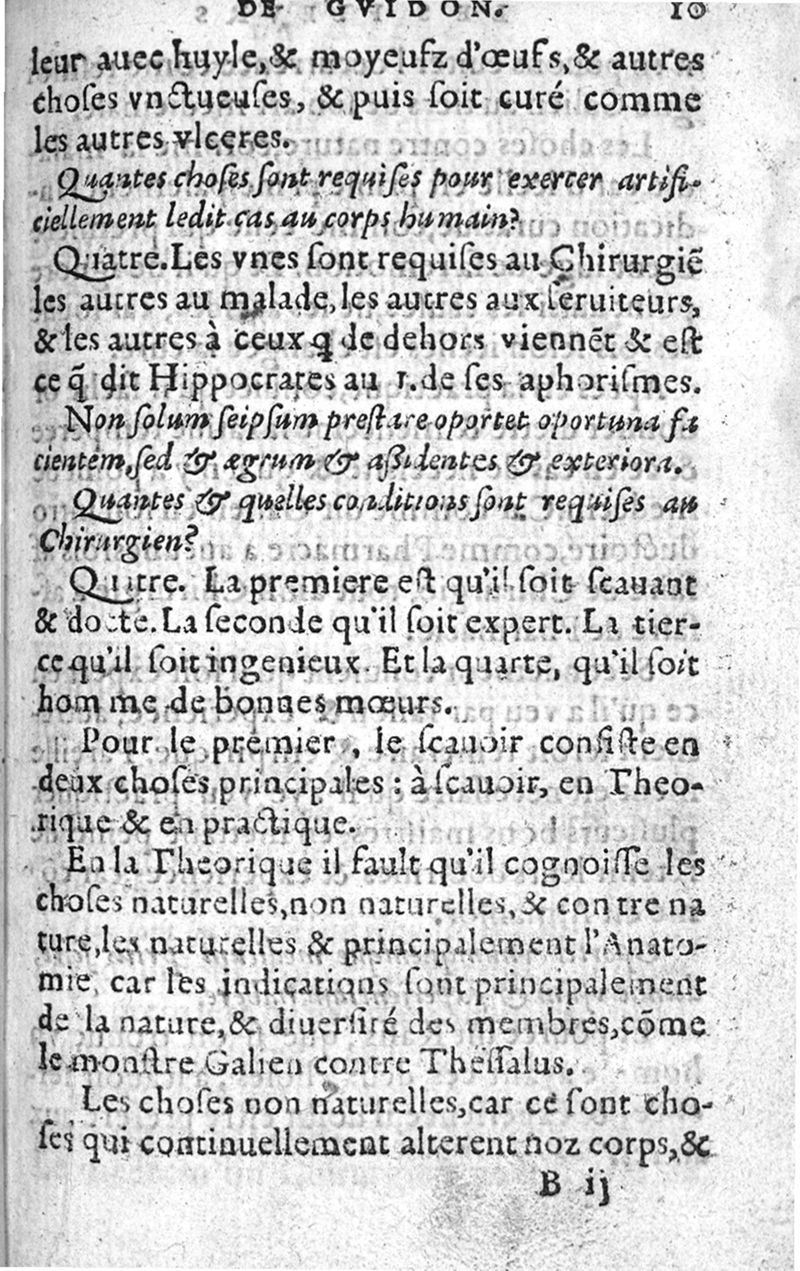 DE GVIDON. 10
leur auec huyle, & moyeufz d'œufs, & autres
choſes vnctueuſes, & puis ſoit curé comme
les autres vlceres.
Quantes choſes ſont requiſes pour exercer artifi-
ciellement ledit cas au corps humain?
Quatre. Les vnes ſont requiſes au Chirurgiẽ
les autres au malade, les autres aux ſeruiteurs,
& les autres à ceux q̃ de dehors viennẽt & eſt
ce q̃ dit Hippocrates au 1. de ſes aphoriſmes.
Non ſolum ſeipſum preſtare oportet oportuna fa
cientem, ſed & ægrum & aſsidentes & exteriora.
Quantes & quelles conditions ſont requiſes au
Chirurgien?
Quatre. La premiere eſt qu'il ſoit ſcauant
& docte. La ſeconde qu'il ſoit expert. La tier-
ce qu'il ſoit ingenieux. Et la quarte, qu'il ſoit
hom me de bonnes mœurs.
Pour le premier, le ſcauoir conſiſte en
deux choſes principales: à ſcauoir, en Theo-
rique & en practique.
En la Theorique il fault qu'il cognoiſſe les
choſes naturelles, non naturelles, & con tre na
ture, les naturelles & principalement l'Anato-
mie, car les indications ſont principalement
de la nature, & diuerſité des membres, cõme
le monſtre Galien contre Theſſalus.
Les choſes non naturelles, car ce ſont cho-
ſes qui continuellement alterent noz corps, &
B ij